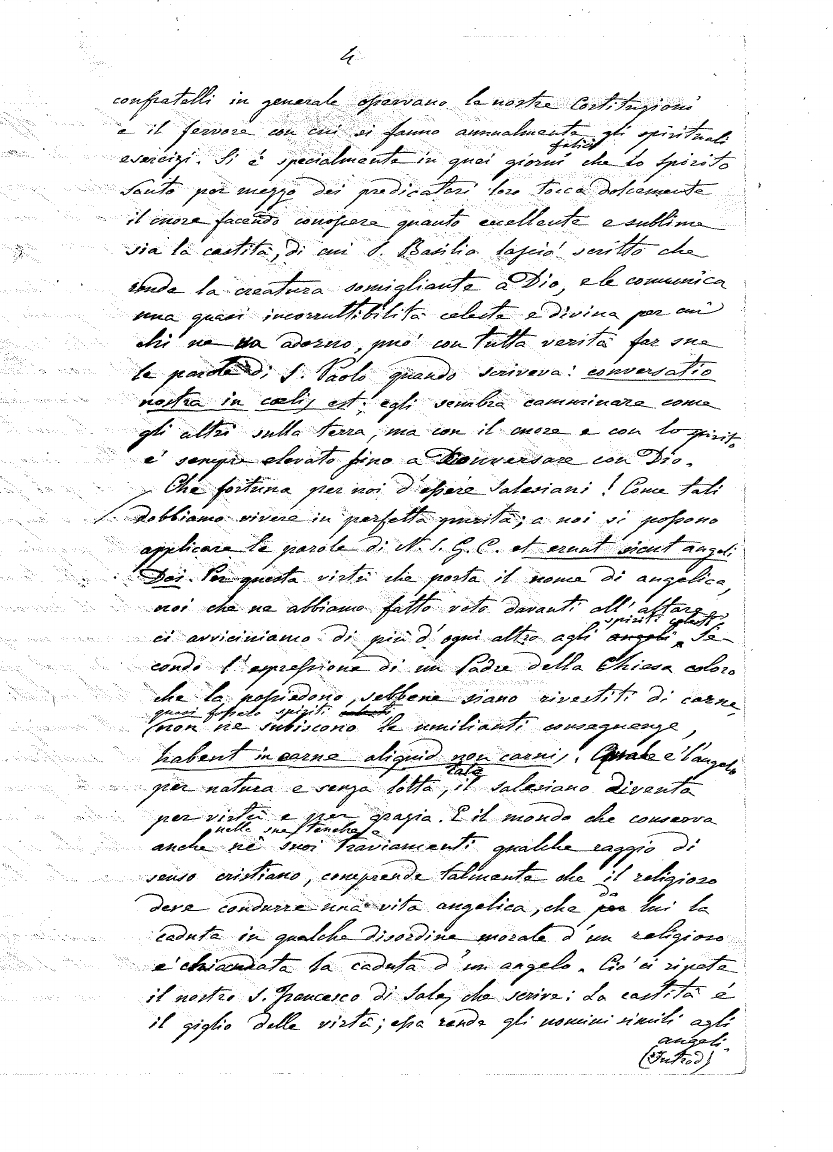 4
confratelli in generale osservano le nostre Costituzioni
e il fervore con cui si fanno annualmente gli spirituali
felici
esercizi. Si è specialmente in quei giorni che lo Spirito
Santo per mezzo dei predicatori loro tocca dolcemente
il cuore facendo conoscere quanto eccellente e sublime
sia la castità, di cui S. Basilio lasciò scritto che
rende la creatura somigliante a Dio, e le comunica
una quasi incorruttibilità celeste e divina per cui
chi ne va adorno, può con tutta verità far sue
le parole di S. Paolo quando scriveva: conversatio
nostra in coelis est; egli sembra camminare come
gli altri sulla terra, ma con il cuore e con lo spirito
è sempre elevato fino a conversare con Dio.
Che fortuna per noi d'essere Salesiani! Come tali
dobbiamo vivere in perfetta purità; a noi si possono
applicare le parole di N. S. G. C. et erunt sicut angeli
Dei. Per questa virtù che porta il nome di angelica,
noi che ne abbiamo fatto voto davanti all'altare,
spiriti celesti
ci avviciniamo di più d'ogni altro agli angeli. Se-
condo l'espressione di un Padre della Chiesa coloro
che la possiedono, sebbene siano rivestiti di carne,
quasi fossero spiriti
non ne subiscono le umilianti conseguenze,
habent in carne aliquid non carnis. Quale è l'angelo
tale
per natura e senza lotta, il salesiano diventa
per virtù e per grazia. E il mondo che conserva
nelle sue tenebre e
anche ne' suoi traviamenti qualche raggio di
senso cristiano, comprende talmente che il religioso
da
deve condurre una vita angelica, che per lui la
caduta in qualche disordine morale d'un religioso
è chiamata la caduta d'un angelo. Ciò ci ripete
il nostro S. Francesco di Sales che scrive: La castità è
il giglio delle virtù; essa rende gli uomini simili agli
angeli.
(Introd)